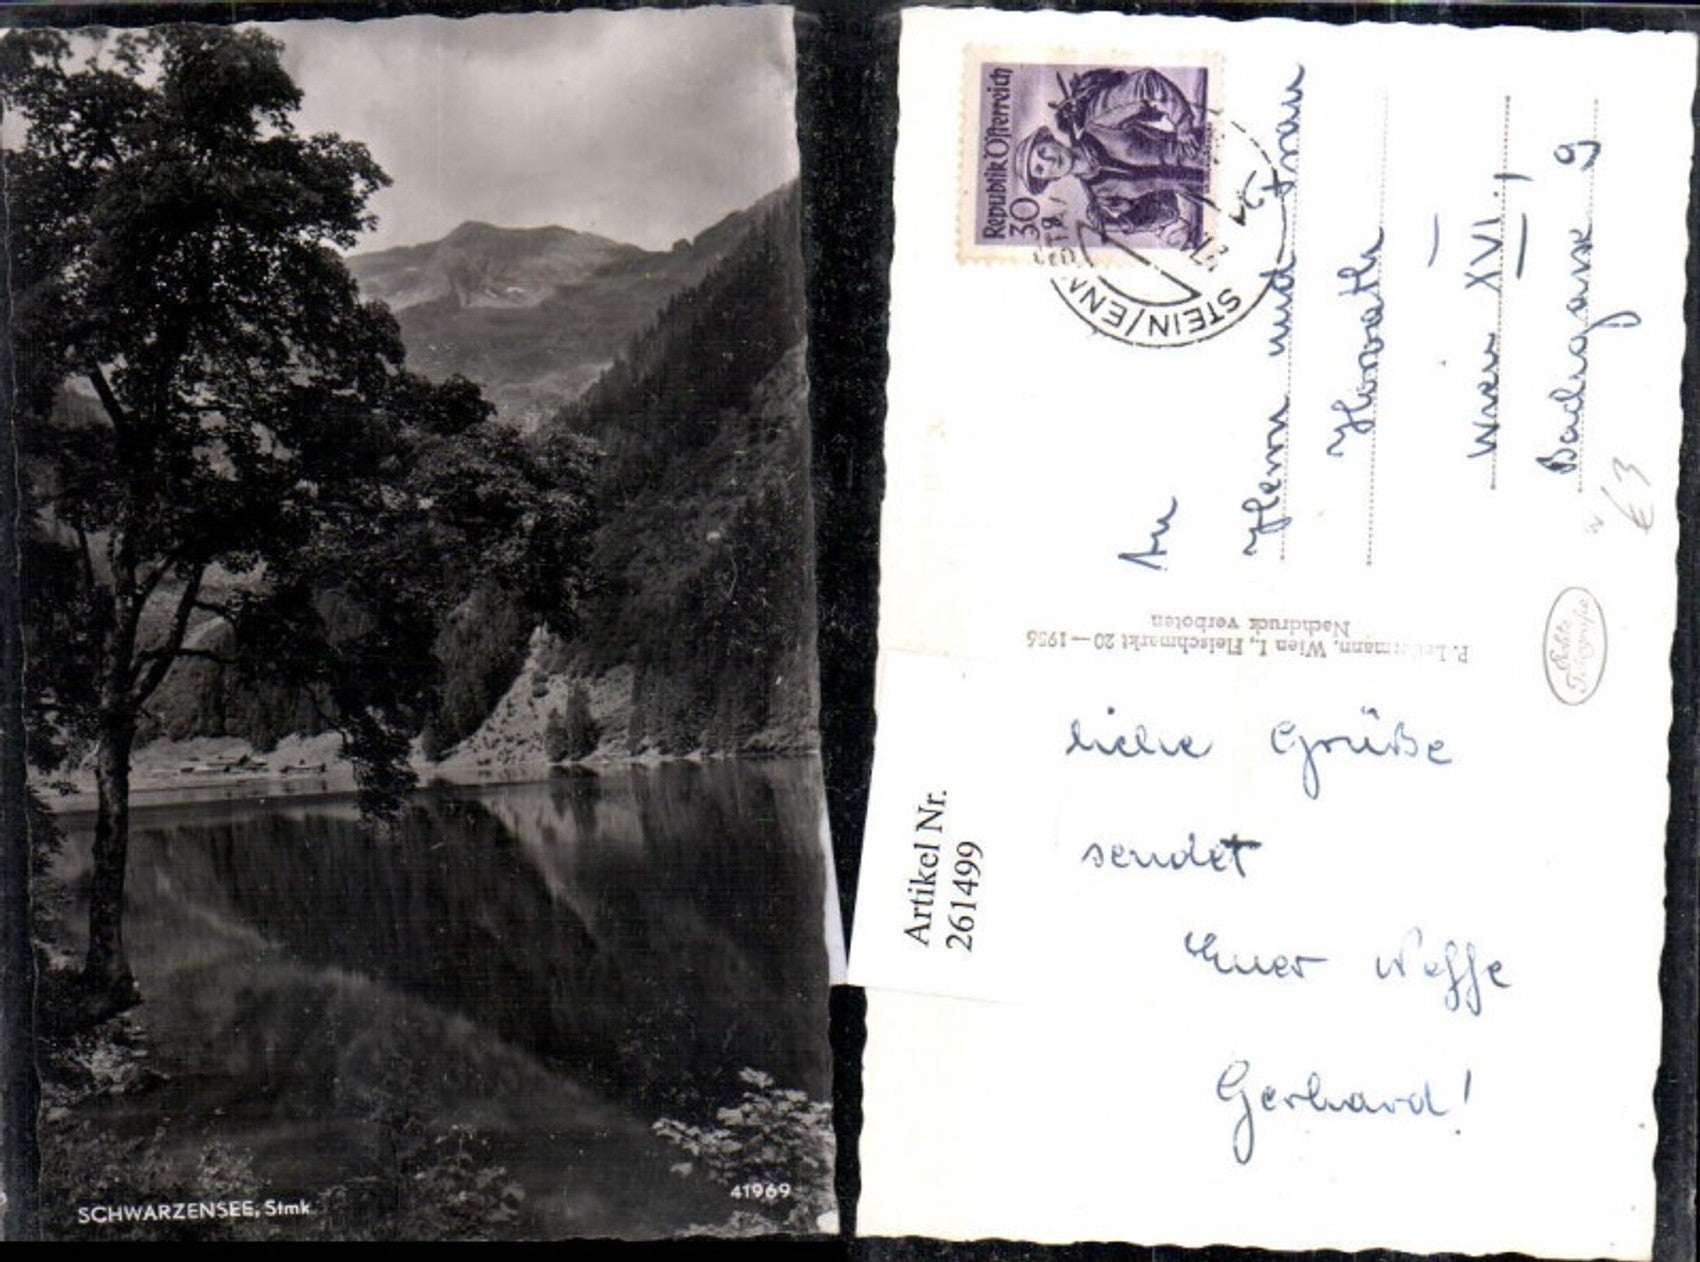 SCHWARZENSEE, Stmk.
41969
Republik Österreich
30
STEIN/ENN
An
Herrn und Frau
Horvath
Wien XVI.,
Bachgasse 9
€3
P. Ledermann, Wien I., Fleischmarkt 20—1956
Nachdruck verboten
Echte
Fotografie
Artikel Nr.
261499
liebe Grüße
sendet
Euer Neffe
Gerhard!